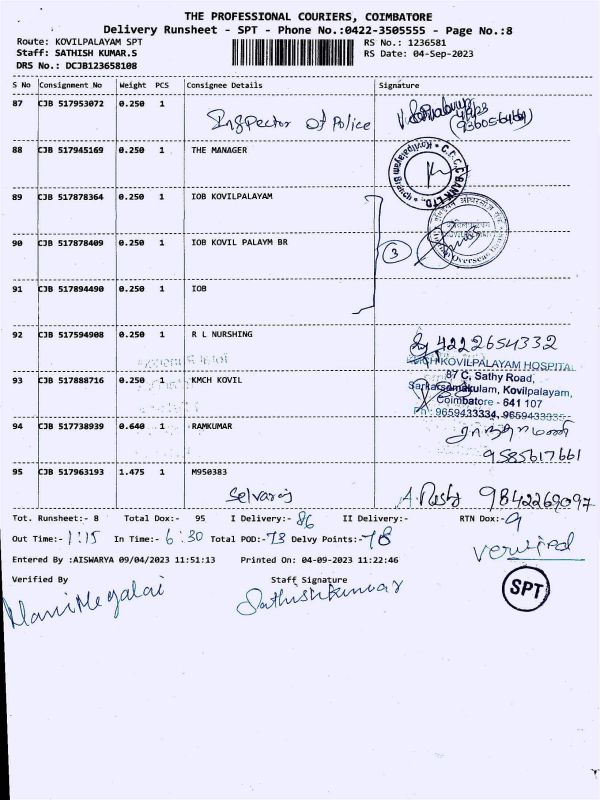 THE PROFESSIONAL COURIERS, COIMBATORE
Delivery Runsheet - SPT - Phone No.:0422-3505555 - Page No.:8
Route: KOVILPALAYAM SPT
RS No.: 1236581
Staff: SATHISH KUMAR.S
RS Date: 04-Sep-2023
DRS No.: DCJB123658108
S No Consignment No Weight PCS Consignee Details Signature
87 CJB 517953072 0.250 1
Inspector of Police
4/9/23
88 CJB 517945169 0.250 1 THE MANAGER
Kovilpalayam Branch
BANK LTD.
89 CJB 517878364 0.250 1 IOB KOVILPALAYAM
90 CJB 517878409 0.250 1 IOB KOVIL PALAYM BR
3
Overseas Bank
91 CJB 517894490 0.250 1 IOB
92 CJB 517594908 0.250 1 R L NURSHING
4222654332
KMCH KOVILPALAYAM HOSPITAL
87 C, Sathy Road,
93 CJB 517888716 0.250 1 KMCH KOVIL
Sarkarsamakulam, Kovilpalayam,
Coimbatore - 641 107
Ph: 9659433334, 9659433335
94 CJB 517738939 0.640 1 RAMKUMAR
9585617661
95 CJB 517963193 1.475 1 M950383
Selvaraj
9842269097
Tot. Runsheet:- 8 Total Dox:- 95 I Delivery:- 86 II Delivery:- RTN Dox:- 9
Out Time:- 1:15 In Time:- 6:30 Total POD:- 73 Delvy Points:- 78
Verified
Entered By :AISWARYA 09/04/2023 11:51:13 Printed On: 04-09-2023 11:22:46
Verified By Staff Signature
ManiMegalai Sathishkumar
SPT